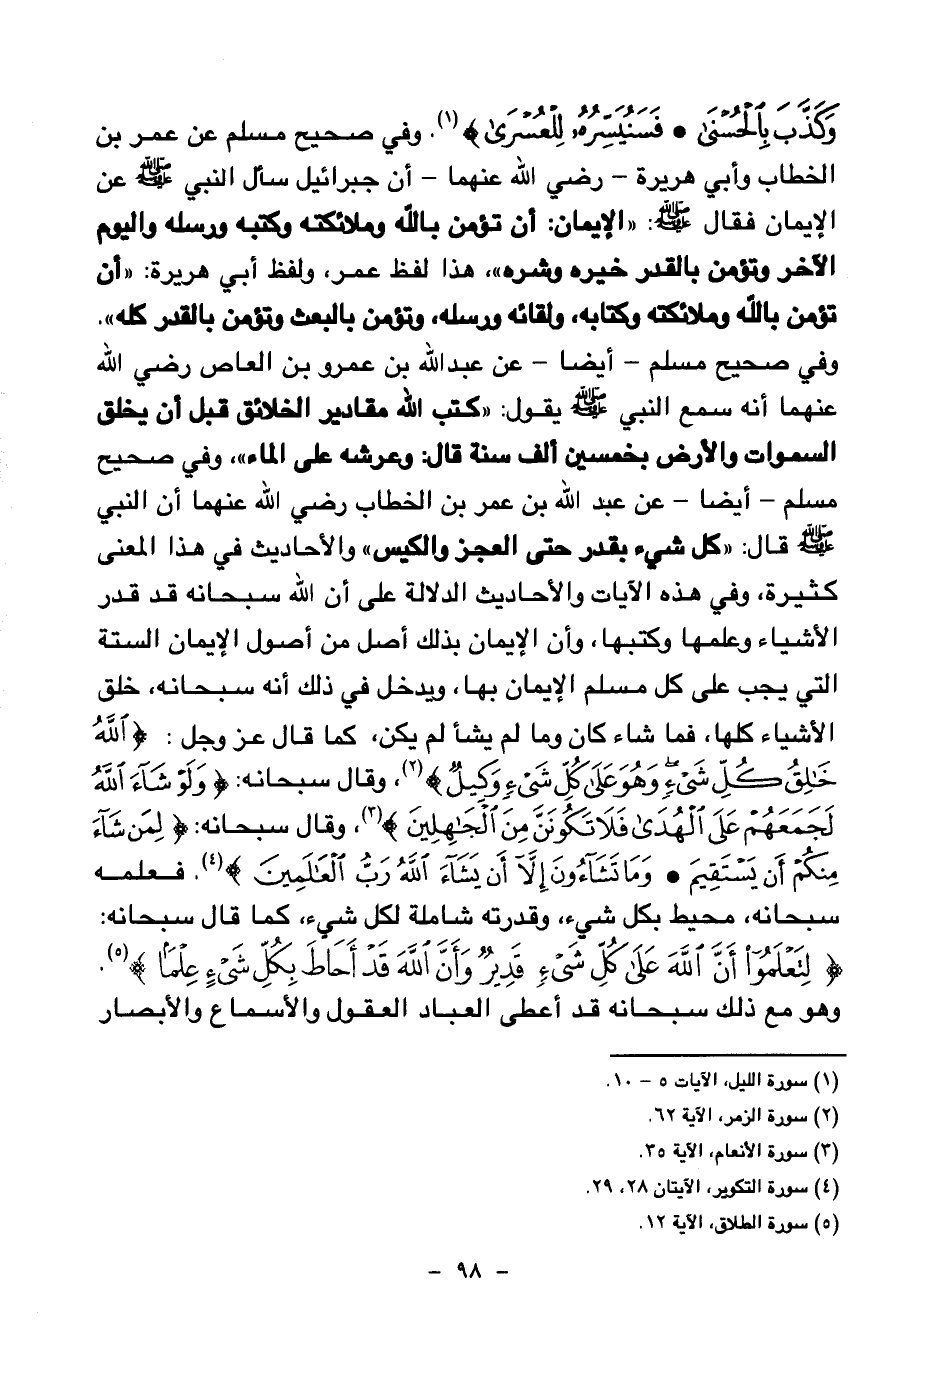 وَكَذَّبَ بِٱلْحُسْنَىٰ • فَسَنُيَسِّرُهُۥ لِلْعُسْرَىٰ ﴾(١). وفي صحيح مسلم عن عمر بن
الخطاب وأبي هريرة - رضي الله عنهما - أن جبرائيل سأل النبي ﷺ عن
الإيمان فقال ﷺ: «الإيمان: أن تؤمن بالله وملائكته وكتبه ورسله واليوم
الآخر وتؤمن بالقدر خيره وشره»، هذا لفظ عمر، ولفظ أبي هريرة: «أن
تؤمن بالله وملائكته وكتابه، ولقائه ورسله، وتؤمن بالبعث وتؤمن بالقدر كله».
وفي صحيح مسلم - أيضا - عن عبدالله بن عمرو بن العاص رضي الله
عنهما أنه سمع النبي ﷺ يقول: «كتب الله مقادير الخلائق قبل أن يخلق
السموات والأرض بخمسين ألف سنة قال: وعرشه على الماء»، وفي صحيح
مسلم - أيضا - عن عبد الله بن عمر بن الخطاب رضي الله عنهما أن النبي
ﷺ قال: «كل شيء بقدر حتى العجز والكيس» والأحاديث في هذا المعنى
كثيرة، وفي هذه الآيات والأحاديث الدلالة على أن الله سبحانه قد قدر
الأشياء وعلمها وكتبها، وأن الإيمان بذلك أصل من أصول الإيمان الستة
التي يجب على كل مسلم الإيمان بها، ويدخل في ذلك أنه سبحانه، خلق
الأشياء كلها، فما شاء كان وما لم يشأ لم يكن، كما قال عز وجل : ﴿ ٱللَّهُ
خَٰلِقُ كُلِّ شَىْءٍ وَهُوَ عَلَىٰ كُلِّ شَىْءٍ وَكِيلٌ ﴾(٢)، وقال سبحانه: ﴿ وَلَوْ شَآءَ ٱللَّهُ
لَجَمَعَهُمْ عَلَى ٱلْهُدَىٰ فَلَا تَكُونَنَّ مِنَ ٱلْجَٰهِلِينَ ﴾(٣)، وقال سبحانه: ﴿ لِمَن شَآءَ
مِنكُمْ أَن يَسْتَقِيمَ • وَمَا تَشَآءُونَ إِلَّآ أَن يَشَآءَ ٱللَّهُ رَبُّ ٱلْعَٰلَمِينَ ﴾(٤). فعلمه
سبحانه، محيط بكل شيء، وقدرته شاملة لكل شيء، كما قال سبحانه:
﴿ لِتَعْلَمُوٓا۟ أَنَّ ٱللَّهَ عَلَىٰ كُلِّ شَىْءٍ قَدِيرٌ وَأَنَّ ٱللَّهَ قَدْ أَحَاطَ بِكُلِّ شَىْءٍ عِلْمًا ﴾(٥).
وهو مع ذلك سبحانه قد أعطى العباد العقول والأسماع والأبصار
(١) سورة الليل، الآيات ٥ - ١٠.
(٢) سورة الزمر، الآية ٦٢.
(٣) سورة الأنعام، الآية ٣٥.
(٤) سورة التكوير، الآيتان ٢٨، ٢٩.
(٥) سورة الطلاق، الآية ١٢.
- ٩٨ -